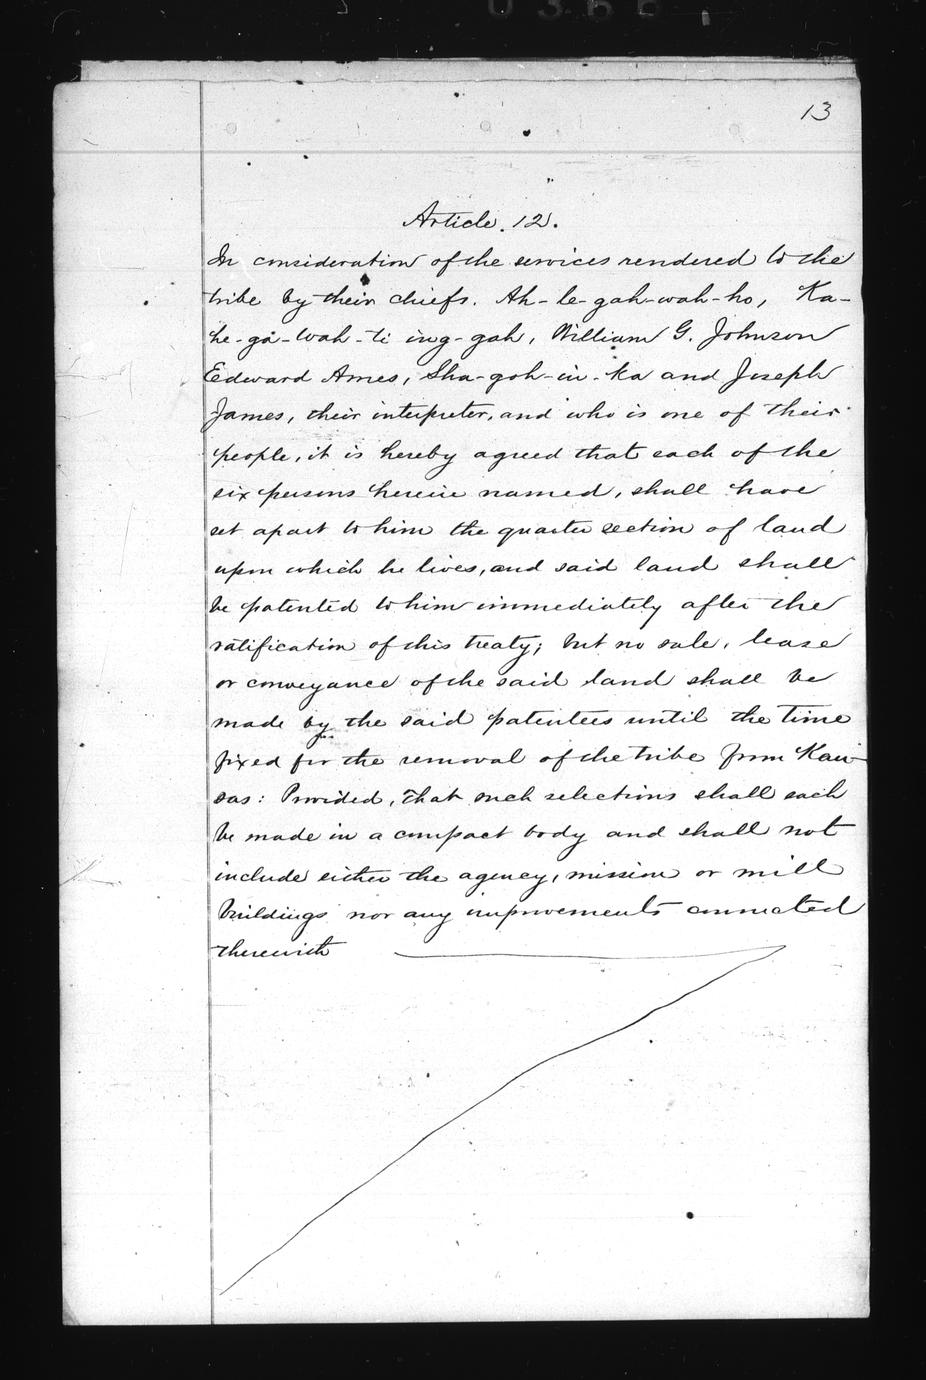 13
Article. 12.
In consideration of the services rendered to the
tribe by their chiefs. Ah-le-gah-wah-ho, Ka-
he-ga-wah-ti ing-gah, William G. Johnson
Edward Ames, Sha-gah-in-ka and Joseph
James, their interpreter, and who is one of their
people, it is hereby agreed that each of the
six persons herein named, shall have
set apart to him the quarter section of land
upon which he lives, and said land shall
be patented to him immediately after the
ratification of this treaty; but no sale, lease
or conveyance of the said land shall be
made by the said patentees until the time
fixed for the removal of the tribe from Kan-
sas: Provided, That such selections shall each
be made in a compact body and shall not
include either the agency, mission or mill
buildings nor any improvements connected
therewith